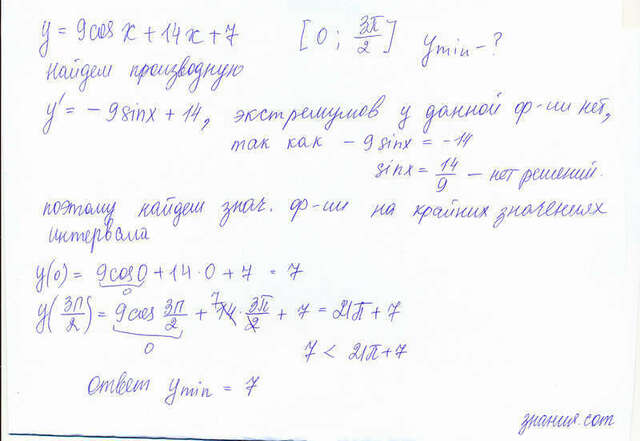 y = 9cos x + 14x + 7 [0; 3π/2] ymin - ?
Найдем производную
y' = - 9sinx + 14, экстремумов у данной ф-ии нет,
так как - 9sinx = -14
sinx = 14/9 - нет решений.
поэтому найдем знач. ф-ии на крайних значениях
интервала
y(0) = 9cos0 + 14·0 + 7 = 7
0
y(3π/2) = 9cos 3π/2 + 7 14·3π/2 + 7 = 21π + 7
0
7 < 21π + 7
Ответ ymin = 7
знания.com